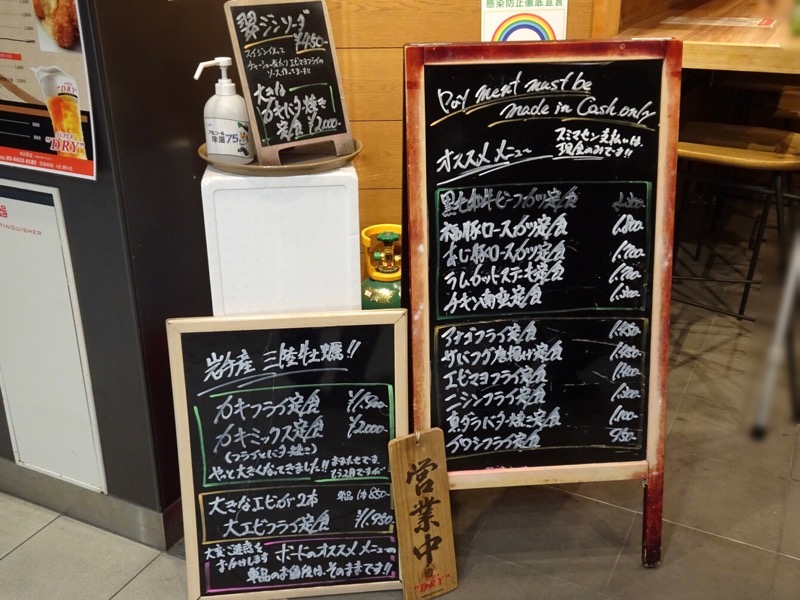 感染防止徹底宣言
翠ジンソーダ
¥450-
大つぶ
カキバター焼き
定食 ¥2,000-
アルコール
除菌 75
"DRY"
Payment must be
made in Cash only
スミマセン支払いは、
現金のみです!!
オススメメニュー
黒毛和牛ビーフカツ定食
福豚ロースカツ定食 1,800
あじ豚ロースカツ定食 1,700
ラムカットステーキ定食 1,700
チキン南蛮定食 1,300
アナゴフライ定食 1,450
サバフグ唐揚げ定食 1,450
エビマヨフライ定食 1,400
ニシンフライ定食 1,300
真ダラバター焼き定食 1,100
イワシフライ定食 950
岩手産 三陸牡蠣!!
カキフライ定食 ¥1,500-
カキミックス定食 ¥2,000-
(フライとバター焼き)
やっと大きくなってきました!!
大きなエビが2本 単品は850-
大エビフライ定食 ¥1,950-
大変ご迷惑を
おかけします
ボードのオススメメニュー
単品のお値段は、そのままです!!
営業中
"DRY"